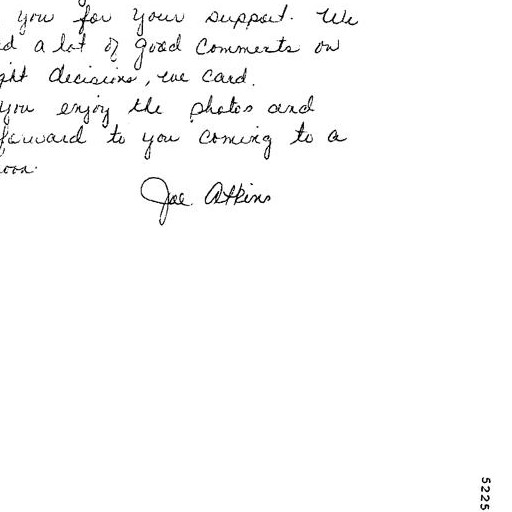 you for your support. We
d a lot of good comments on
ght decisions, we card.
you enjoy the photos and
forward to you coming to a
oon.
Joe Atkins
5225